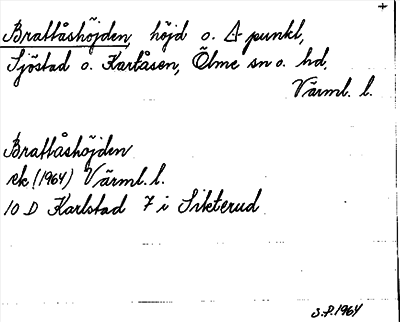 +
Brattåshöjden, höjd o. Δ punkt,
Sjöstad o. Kartåsen, Ölme sn o. hd,
Värml. l.
Brattåshöjden
ek (1964) Värml. l.
10 D Karlstad 7 i Sikterud
S.P. 1964